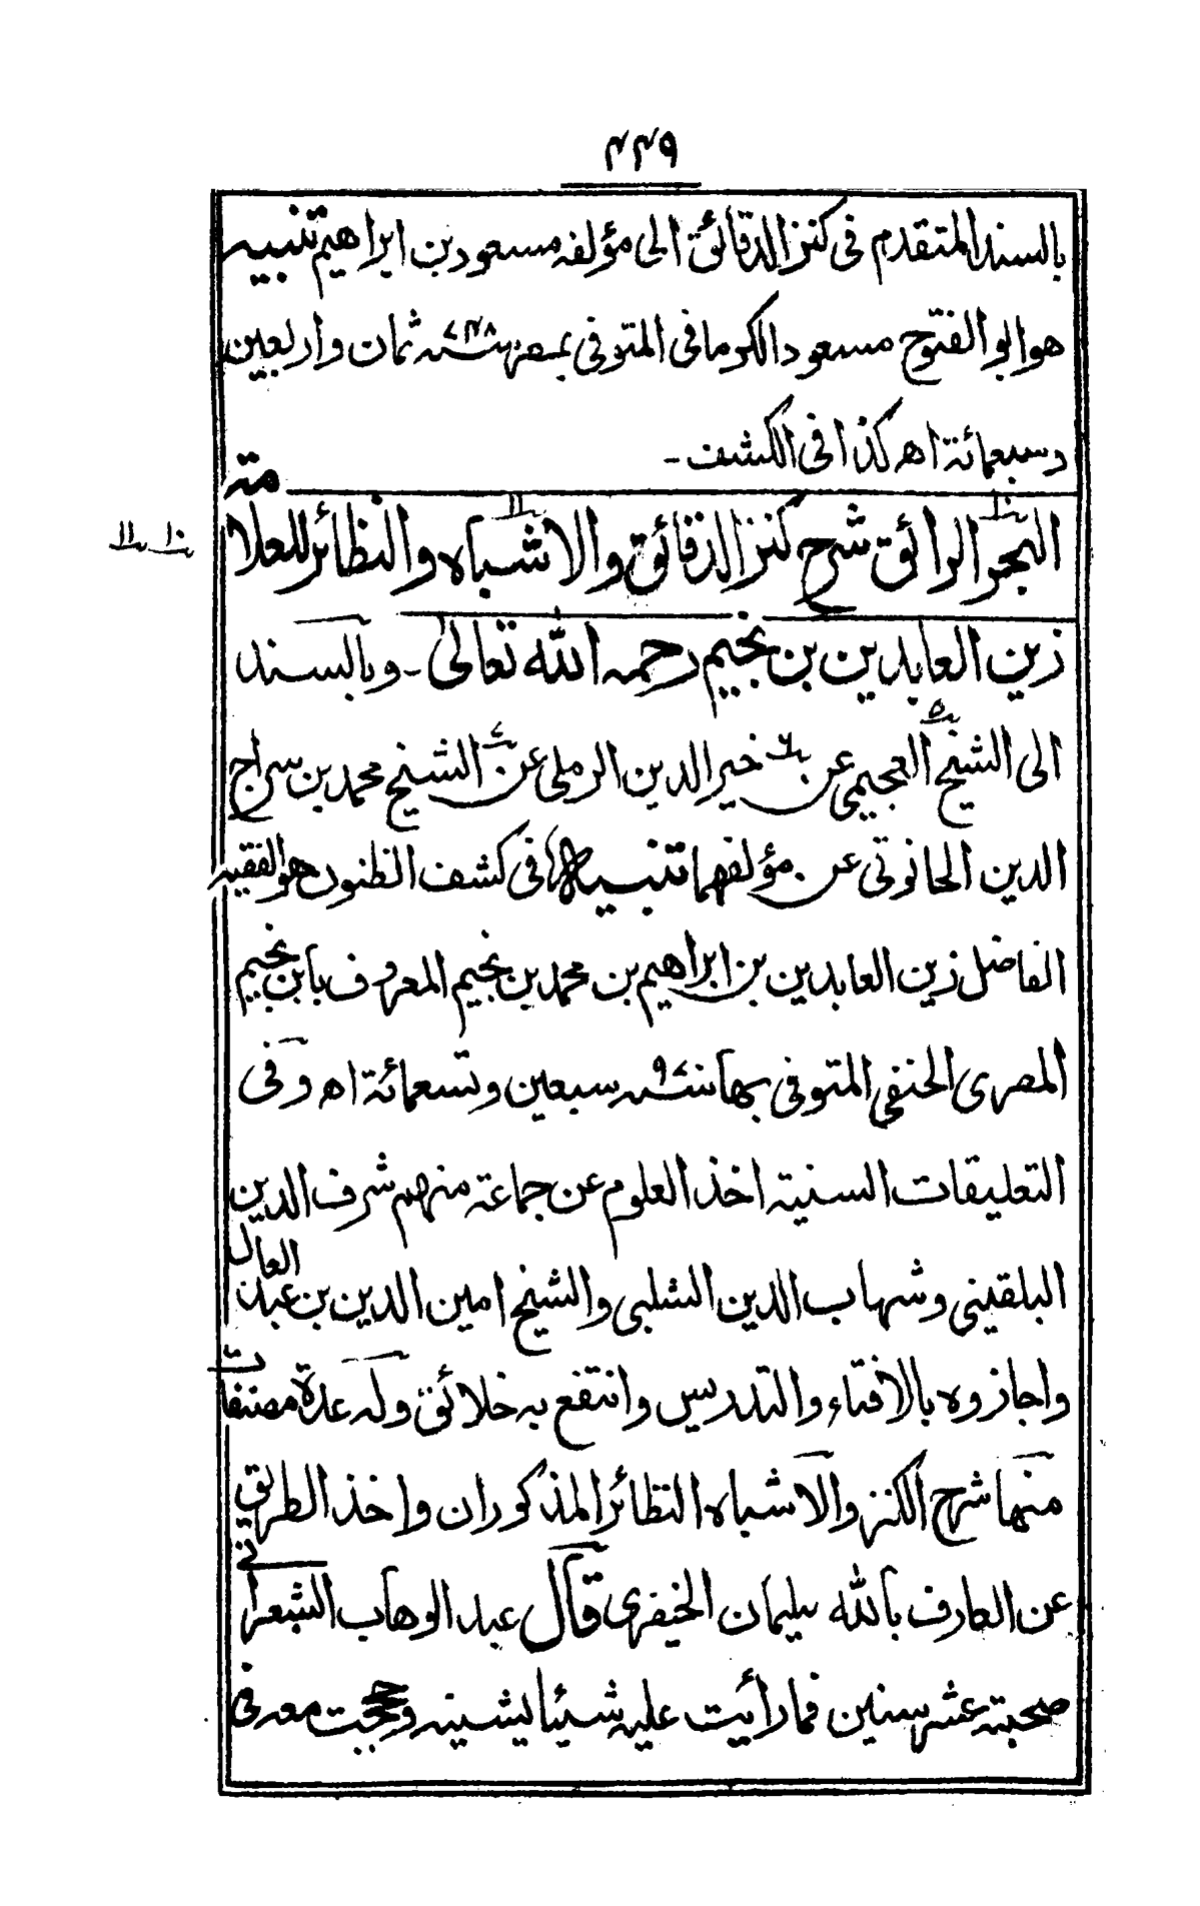 ۴۴۹
بالسند المتقدم فى كنز الدقائق الى مؤلفه مسعود بن ابراهيم تنبيه
هو ابو الفتوح مسعود الكرمانى المتوفى بمصر سنة ۷۴۸ ثمان واربعين
وسبعمائة اھ كذا فى الكشف -
البحر الرائق شرح كنز الدقائق والاشباه والنظائر للعلامة
زين العابدين بن نجيم رحمه الله تعالى - وبالسند
الى الشيخ العجيمى عن خير الدين الرملى عن الشيخ محمد بن سراج
الدين الحانوتى عن مؤلفهما تنبيه فى كشف الظنون هو الفقيه
الفاضل زين العابدين بن ابراهيم بن محمد بن نجيم المعروف بابن نجيم
المصرى الحنفى المتوفى بها سنة ۹۷۰ سبعين وتسعمائة اھ وفى
التعليقات السنية اخذ العلوم عن جماعة منهم شرف الدين
البلقينى وشهاب الدين الشلبى والشيخ امين الدين بن عبد العال
واجازوه بالافتاء والتدريس وانتفع به خلائق وله عدة مصنفات
منها شرح الكنز والاشباه النظائر المذكوران واخذ الطريق
عن العارف بالله سليمان الخيفرى قال عبد الوهاب الشعرانى
صحبته عشر سنين فما رأيت عليه شيئا يشينه وحججت معه فى
۱۰ ۱۱